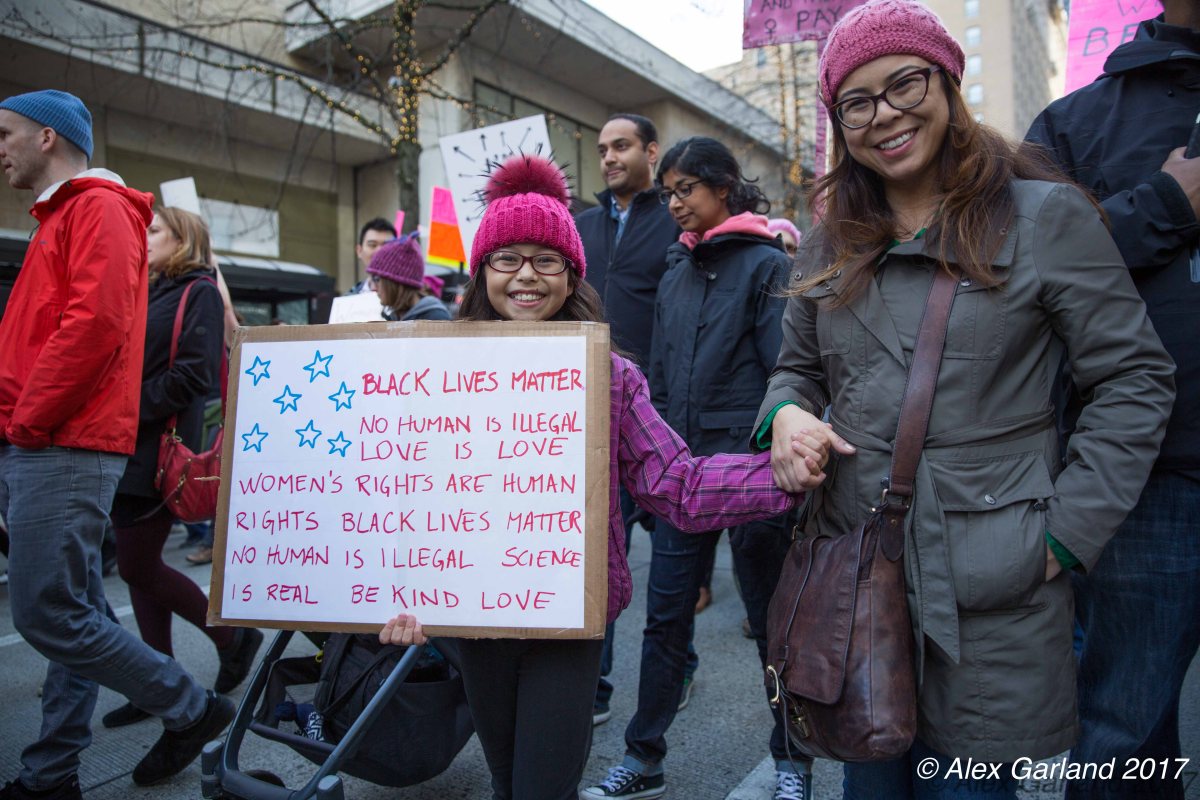 AND THE
♀ PAY
W
BE
BLACK LIVES MATTER
NO HUMAN IS ILLEGAL
LOVE IS LOVE
WOMEN'S RIGHTS ARE HUMAN
RIGHTS BLACK LIVES MATTER
NO HUMAN IS ILLEGAL SCIENCE
IS REAL BE KIND LOVE
© Alex Garland 2017